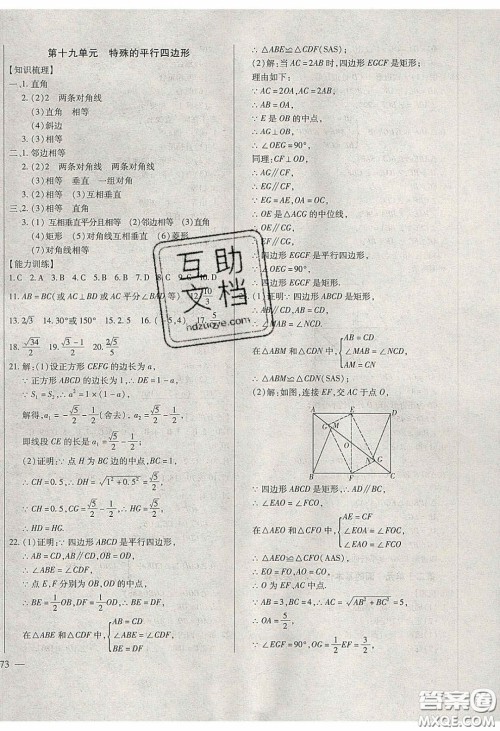 第十九单元 特殊的平行四边形
【知识梳理】
一、1. 直角
2. (2)2 两条对角线
(3)直角 相等
(4)斜边
二、1. 邻边相等
2. (2)2 两条对角线 两条对角线
(3)相等 垂直 一组对角
(4)相等 垂直 (6)相互垂直
三、2. (3)直角 相等
3. (1)互相垂直平分且相等 (2)邻边相等 (3)垂直
(4)矩形 (5)对角线互相垂直 (6)菱形
(7)对角线相等
【能力训练】
1. C 2. A 3. B 4. D 5. A 6. D
11. AB=BC(或 AC⊥BD 或 AC 平分
13. 2√3 14. 30°或 150° 15. 2.5
18. √34/2 19. (√3-1)/2 20. √5/2
21. 解:(1)设正方形 CEFG 的边长为 a,
∵正方形 ABCD 的边长为 1,∴DE=1-a,
∵S₁=S₂,∴a²=1-a,
解得,a₁=-√5/2-1/2(舍去),a₂=√5/2-1/2,
即线段 CE 的长是 √5/2-1/2;
(2)证明:∵点 H 为 BC 边的中点,BC=1,
∴CH=0.5,∴DH=√(1²+0.5²)=√5/2,
∵CH=0.5,CG=√5/2-1/2,
∴HG=√5/2,∴HD=HG.
22. (1)证明:∵四边形 ABCD 是平行四边形,
∴AB=CD,AB∥CD,OB=OD,OA=OC,
∴∠ABE=∠CDF,
∵点 E,F 分别为 OB,OD 的中点,
∴BE=1/2OB,DF=1/2OD,
∴BE=DF,
在△ABE 和△CDF 中,{AB=CD ∠ABE=∠CDF, BE=DF
73
∴△ABE≌△CDF(SAS);
(2)解:当 AC=2AB 时,四边形 EGCF 是矩形;
理由如下:
∵AC=2OA,AC=2AB,
∴AB=OA,
∵E 是 OB 的中点,
∴AG⊥OB,
∴∠OEG=90°,
同理:CF⊥OD,
∴AG∥CF,
∴EG∥CF,
∵EG=AE,OA=OC,
∴OE 是△ACG 的中位线,
∴OE∥CG,
∴EF∥CG,
∴四边形 EGCF 是平行四边形,
∵∠OEG=90°,
∴四边形 EGCF 是矩形.
∴AB∥CD,
∴∠MAB=∠NCD.
在△ABM 和△CDN 中,{AB=CD ∠MAB=∠NCD AM=CN
∴△ABM≌△CDN(SAS);
(2)解:如图,连接 EF,交 AC 于点 O.
A E D
G M
O
N H
B F C
∵四边形 ABCD 是矩形,
∴∠EAO=∠FCO,
在△AEO 和△CFO 中,{AE=CF ∠EOA=∠FOC ∠EAO=∠FCO
∴△AEO≌△CFO(AAS),
∴EO=FO,OA=OC,
∴O 为 EF、AC 中点.
∵AB=3,BC=4,∴AC=√(AB²+BC²)=5,
∴OA=5/2,
∵∠EGF=90°,OG=1/2EF=3/2,
互助文档
ndzuoye.com
答案圈
MXQE.COM